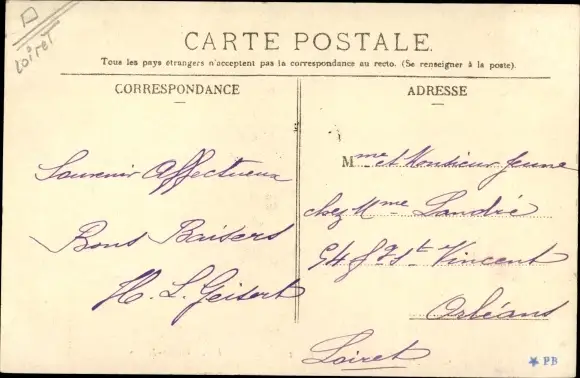 Loiret
CARTE POSTALE.
Tous les pays étrangers n'acceptent pas la correspondance au recto. (Se renseigner à la poste).
CORRESPONDANCE
ADRESSE
Souvenir Affectueux
Bons Baisers
H. L. Geisert
Mme et Monsieur Jeune
chez Mme Landré
94 St Vincent
Orléans
Loiret
PB